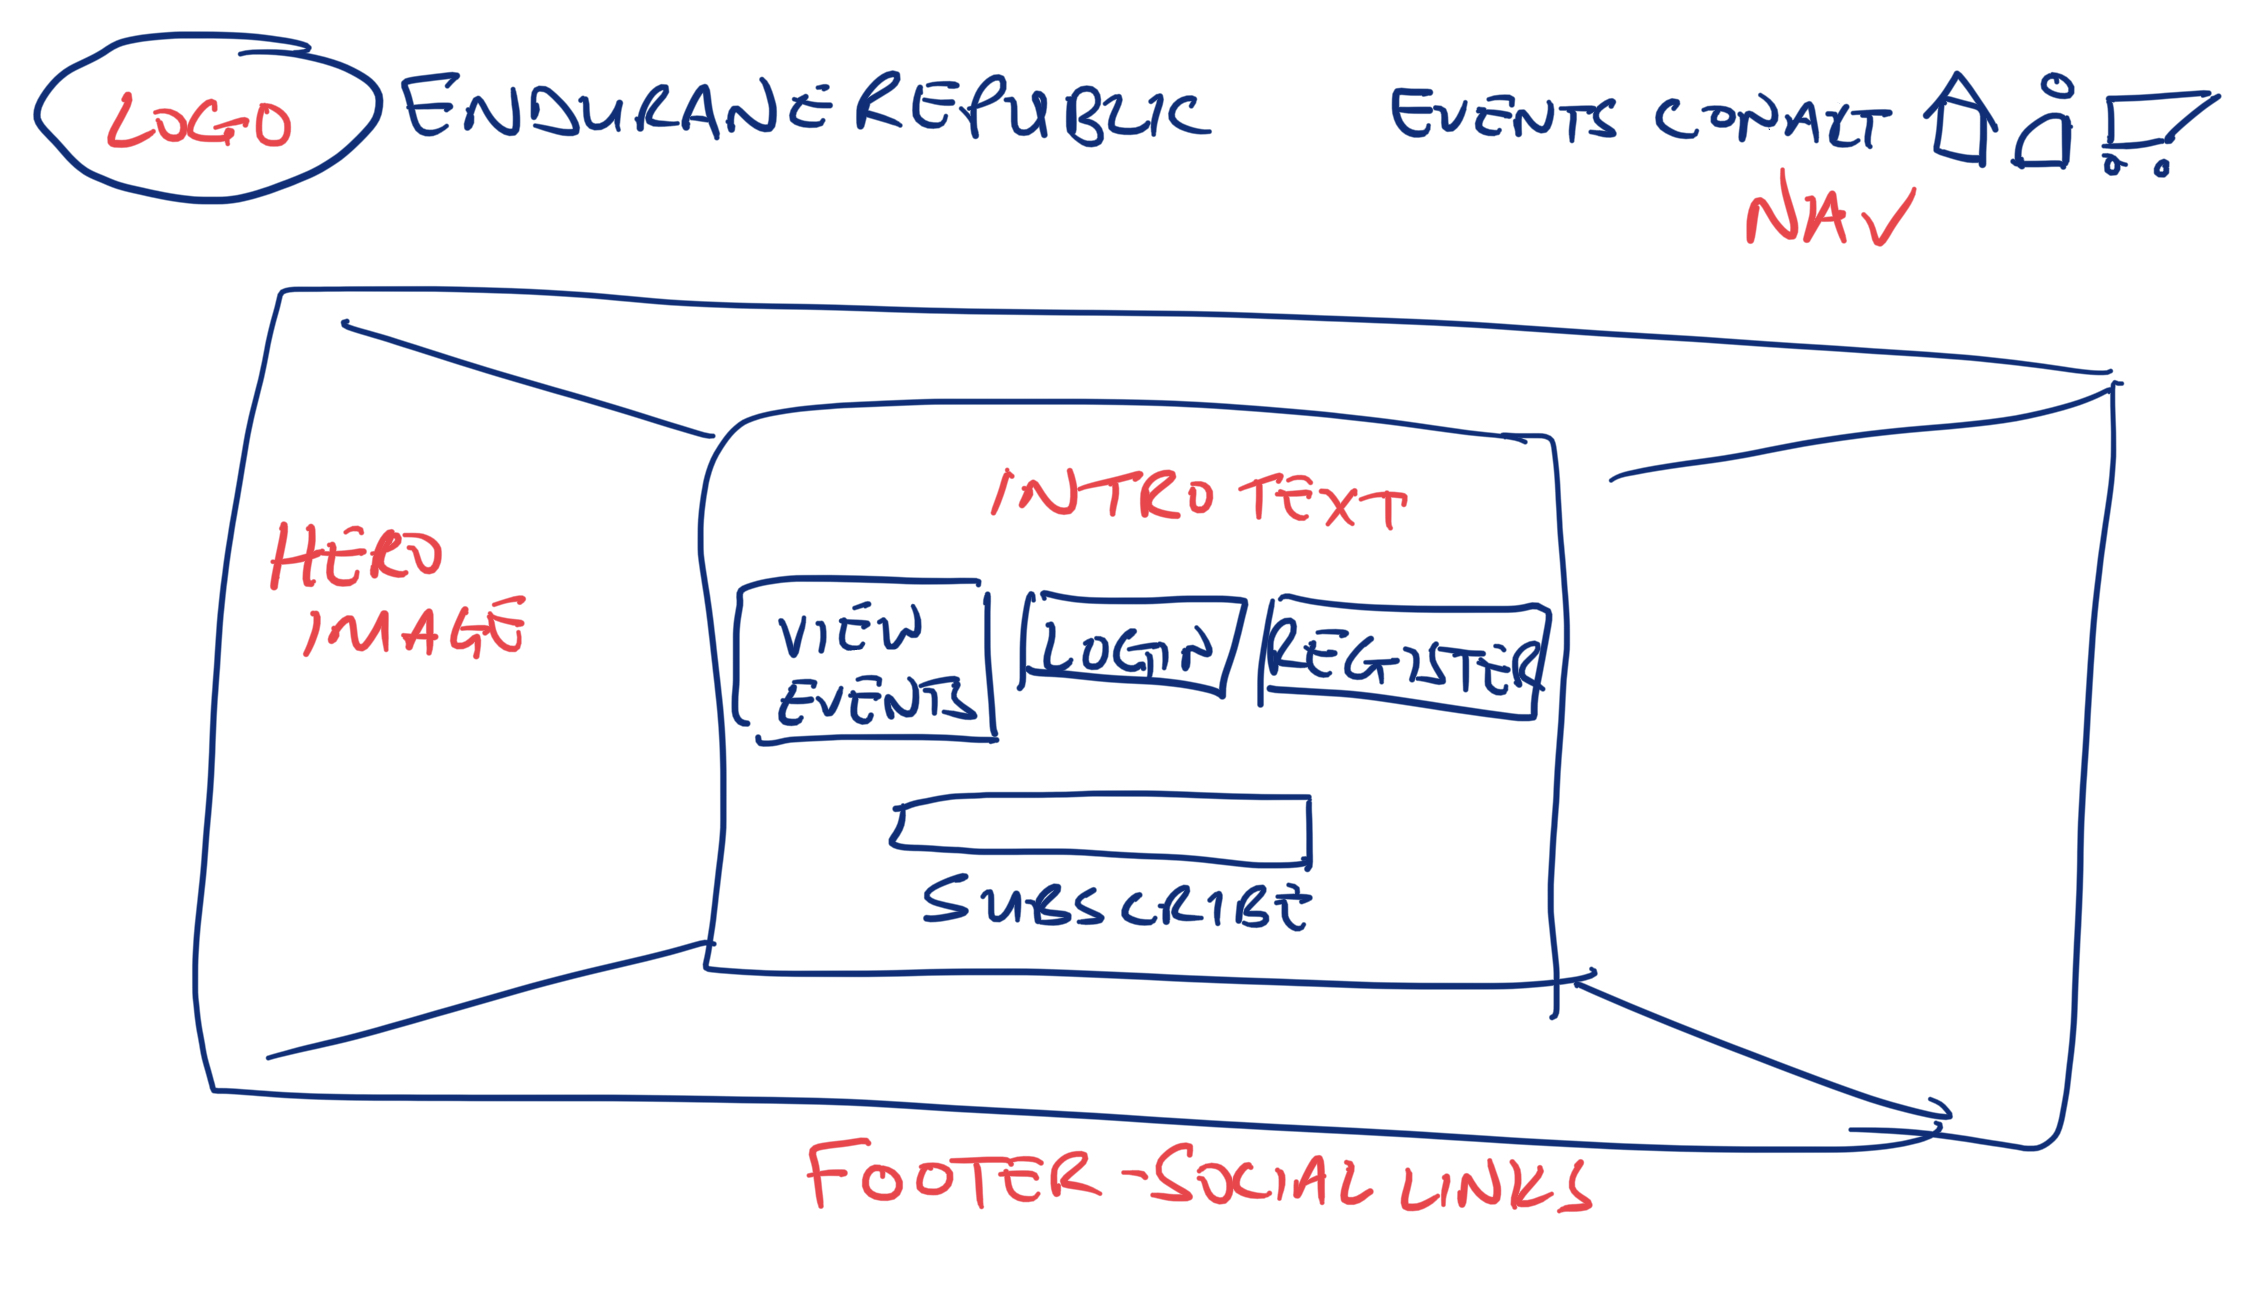 LOGO ENDURANCE REPUBLIC EVENTS CONACT
NAV
INTRO TEXT
HERO
IMAGE
VIEW
EVENTS
LOGIN
REGISTER
SUBSCRIBE
FOOTER - SOCIAL LINKS